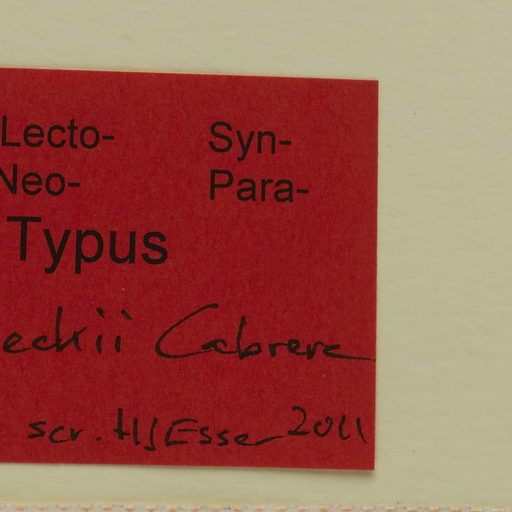 Lecto- Syn-
Neo- Para-
Typus
eckii Cabrera
scr. HJEsser 2011